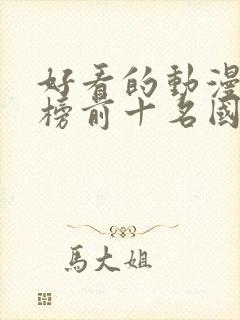 好看的動漫
榜前十名國
馬大姐